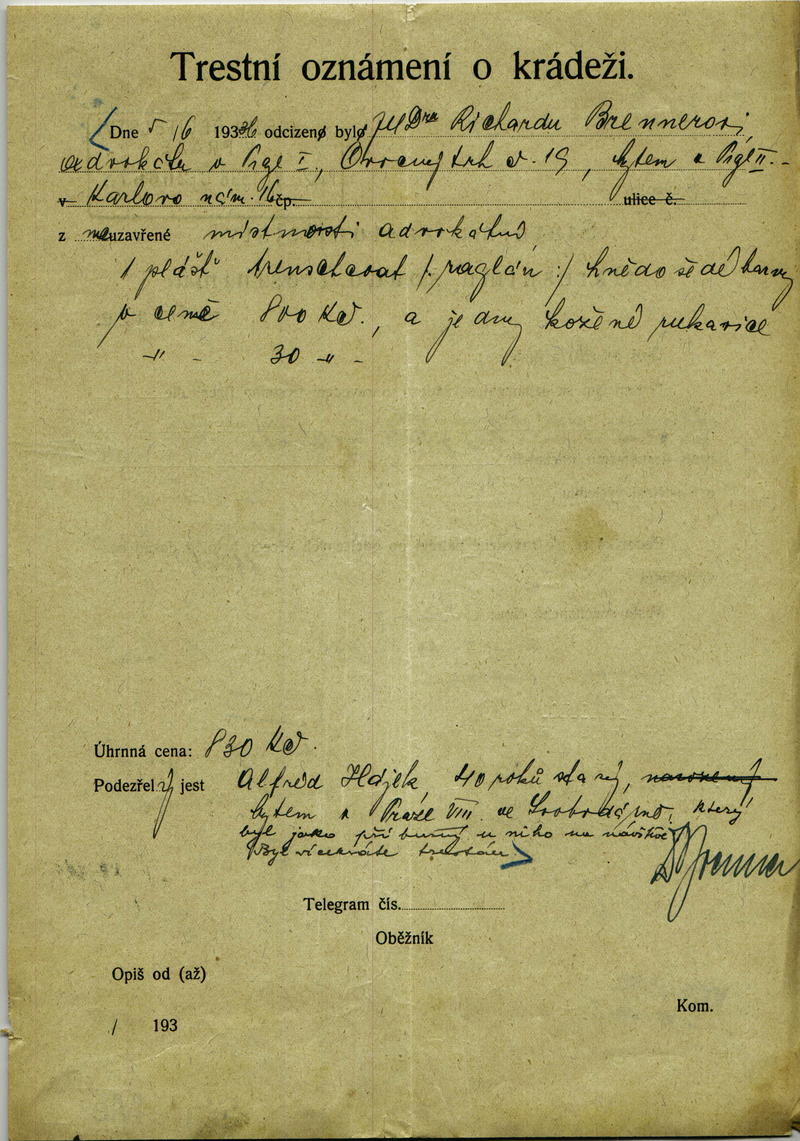 Trestní oznámení o krádeži.
Dne 5/6 1936 odcizeno bylo JUDru Richardu Brennerovi,
advokátu v Praze I., Ovocný trh č. 19, bytem v Praze II. -
v Karlovo nám. 16 čp. ulice č.
z neuzavřené místnosti advokátní
1 plášť trenchcoat /: raglán :/ hnědo šedé barvy
v ceně 800 Kč., a jedny kožené rukavice
-"- 30 -"-
Úhrnná cena: 830 Kč.
Podezřelý jest Alfréd Hájek, 40 roků starý,
bytem v Praze VIII. ve Svobodárně, který
byl jako při u něho na návštěvě
Byl vícekráte trestán
Dr Brenner
Telegram čís.
Oběžník
Opiš od (až)
Kom.
/ 193